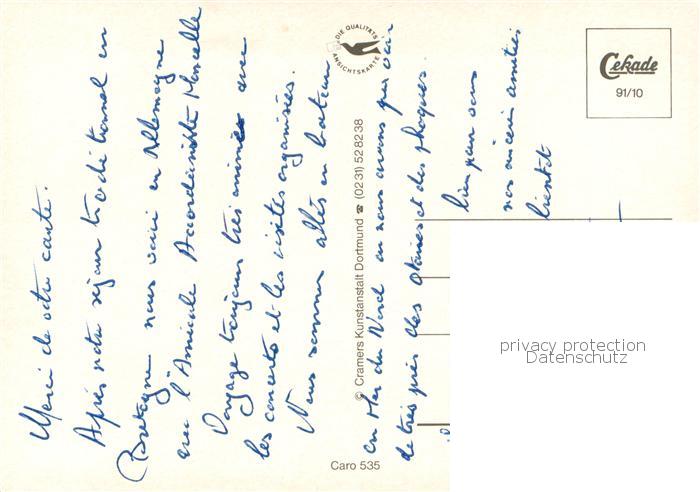 Merci de votre carte.
Après notre séjour traditionnel en
Bretagne nous voici en Allemagne
avec l'Amicale Accordéoniste Marcelle
Voyage toujours très animé avec
les concerts et les visites organisées.
Nous sommes allés en bateau
en Mer du Nord où nous avons pu voir
de très près des et des phoques.
bien pour vous
nos sincères amitiés
bientôt
DIE QUALITÄTS
ANSICHTSKARTE
© Cramers Kunstanstalt Dortmund ☎ (0231) 528238
Caro 535
Cekade
91/10
privacy protection
Datenschutz